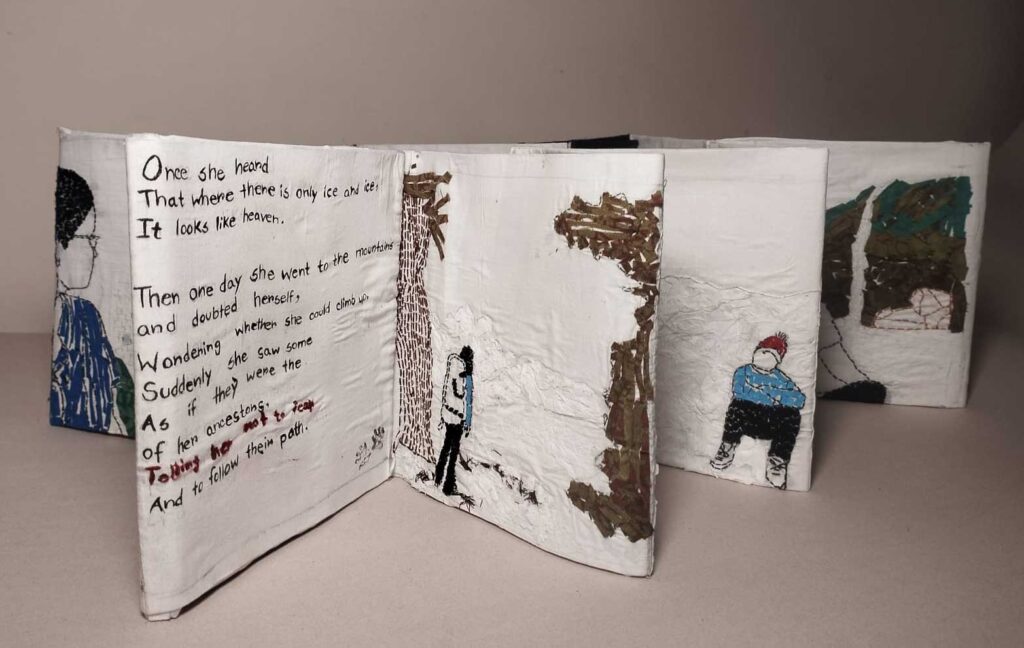 Once she heard
That where there is only ice and ice,
It looks like heaven.
Then one day she went to the mountains
and doubted herself,
Wondering whether she could climb up,
Suddenly she saw some
As if they were the
of her ancestors,
Telling her not to fear
And to follow their path.